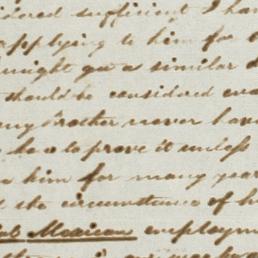 sufficient I ha
pplying to him for
might get a similar
should be considered
brother never
have to prove it unless
him for many year
the circumstance of h
Mexican employm